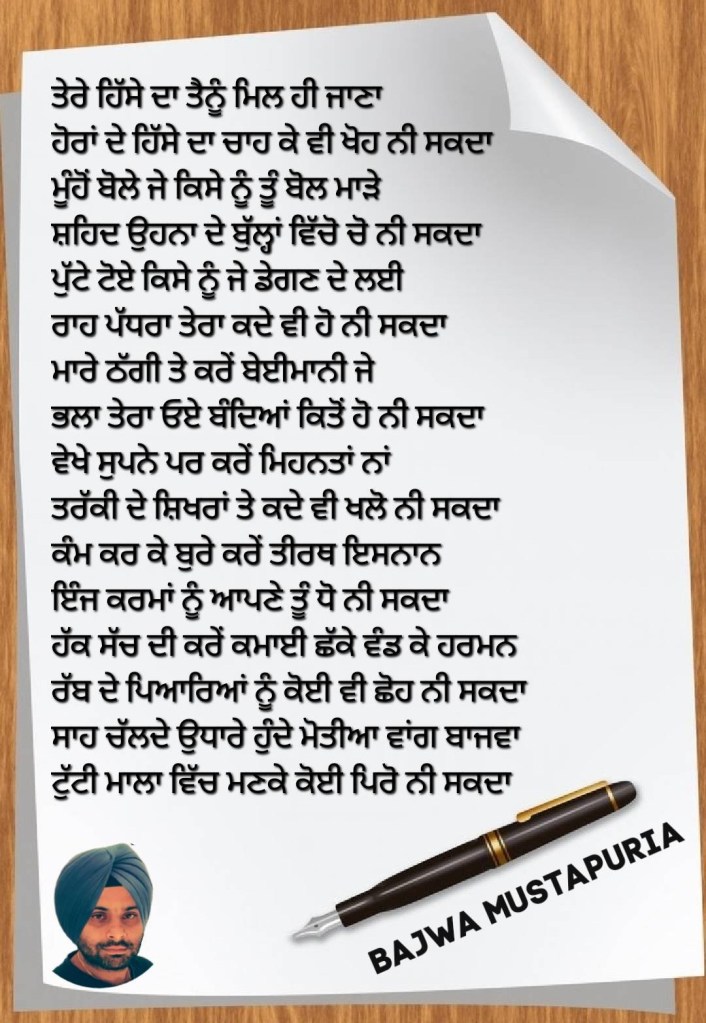 ਤੇਰੇ ਹਿੱਸੇ ਦਾ ਤੈਨੂੰ ਮਿਲ ਹੀ ਜਾਣਾ
ਹੋਰਾਂ ਦੇ ਹਿੱਸੇ ਦਾ ਚਾਹ ਕੇ ਵੀ ਖੋਹ ਨੀ ਸਕਦਾ
ਮੂੰਹੋਂ ਬੋਲੇ ਜੇ ਕਿਸੇ ਨੂੰ ਤੂੰ ਬੋਲ ਮਾੜੇ
ਸ਼ਹਿਦ ਉਹਨਾ ਦੇ ਬੁੱਲ੍ਹਾਂ ਵਿੱਚੋ ਚੋ ਨੀ ਸਕਦਾ
ਪੁੱਟੇ ਟੋਏ ਕਿਸੇ ਨੂੰ ਜੇ ਡੇਗਣ ਦੇ ਲਈ
ਰਾਹ ਪੱਧਰਾ ਤੇਰਾ ਕਦੇ ਵੀ ਹੋ ਨੀ ਸਕਦਾ
ਮਾਰੇ ਠੱਗੀ ਤੇ ਕਰੇਂ ਬੇਈਮਾਨੀ ਜੇ
ਭਲਾ ਤੇਰਾ ਓਏ ਬੰਦਿਆਂ ਕਿਤੋਂ ਹੋ ਨੀ ਸਕਦਾ
ਵੇਖੇ ਸੁਪਨੇ ਪਰ ਕਰੇਂ ਮਿਹਨਤਾਂ ਨਾਂ
ਤਰੱਕੀ ਦੇ ਸ਼ਿਖਰਾਂ ਤੇ ਕਦੇ ਵੀ ਖਲੋ ਨੀ ਸਕਦਾ
ਕੰਮ ਕਰ ਕੇ ਬੁਰੇ ਕਰੇਂ ਤੀਰਥ ਇਸਨਾਨ
ਇੰਜ ਕਰਮਾਂ ਨੂੰ ਆਪਣੇ ਤੂੰ ਧੋ ਨੀ ਸਕਦਾ
ਹੱਕ ਸੱਚ ਦੀ ਕਰੇਂ ਕਮਾਈ ਛੱਕੇ ਵੰਡ ਕੇ ਹਰਮਨ
ਰੱਬ ਦੇ ਪਿਆਰਿਆਂ ਨੂੰ ਕੋਈ ਵੀ ਛੋਹ ਨੀ ਸਕਦਾ
ਸਾਹ ਚੱਲਦੇ ਉਧਾਰੇ ਹੁੰਦੇ ਮੋਤੀਆ ਵਾਂਗ ਬਾਜਵਾ
ਟੁੱਟੀ ਮਾਲਾ ਵਿੱਚ ਮਣਕੇ ਕੋਈ ਪਿਰੋ ਨੀ ਸਕਦਾ
BAJWA MUSTAPURIA